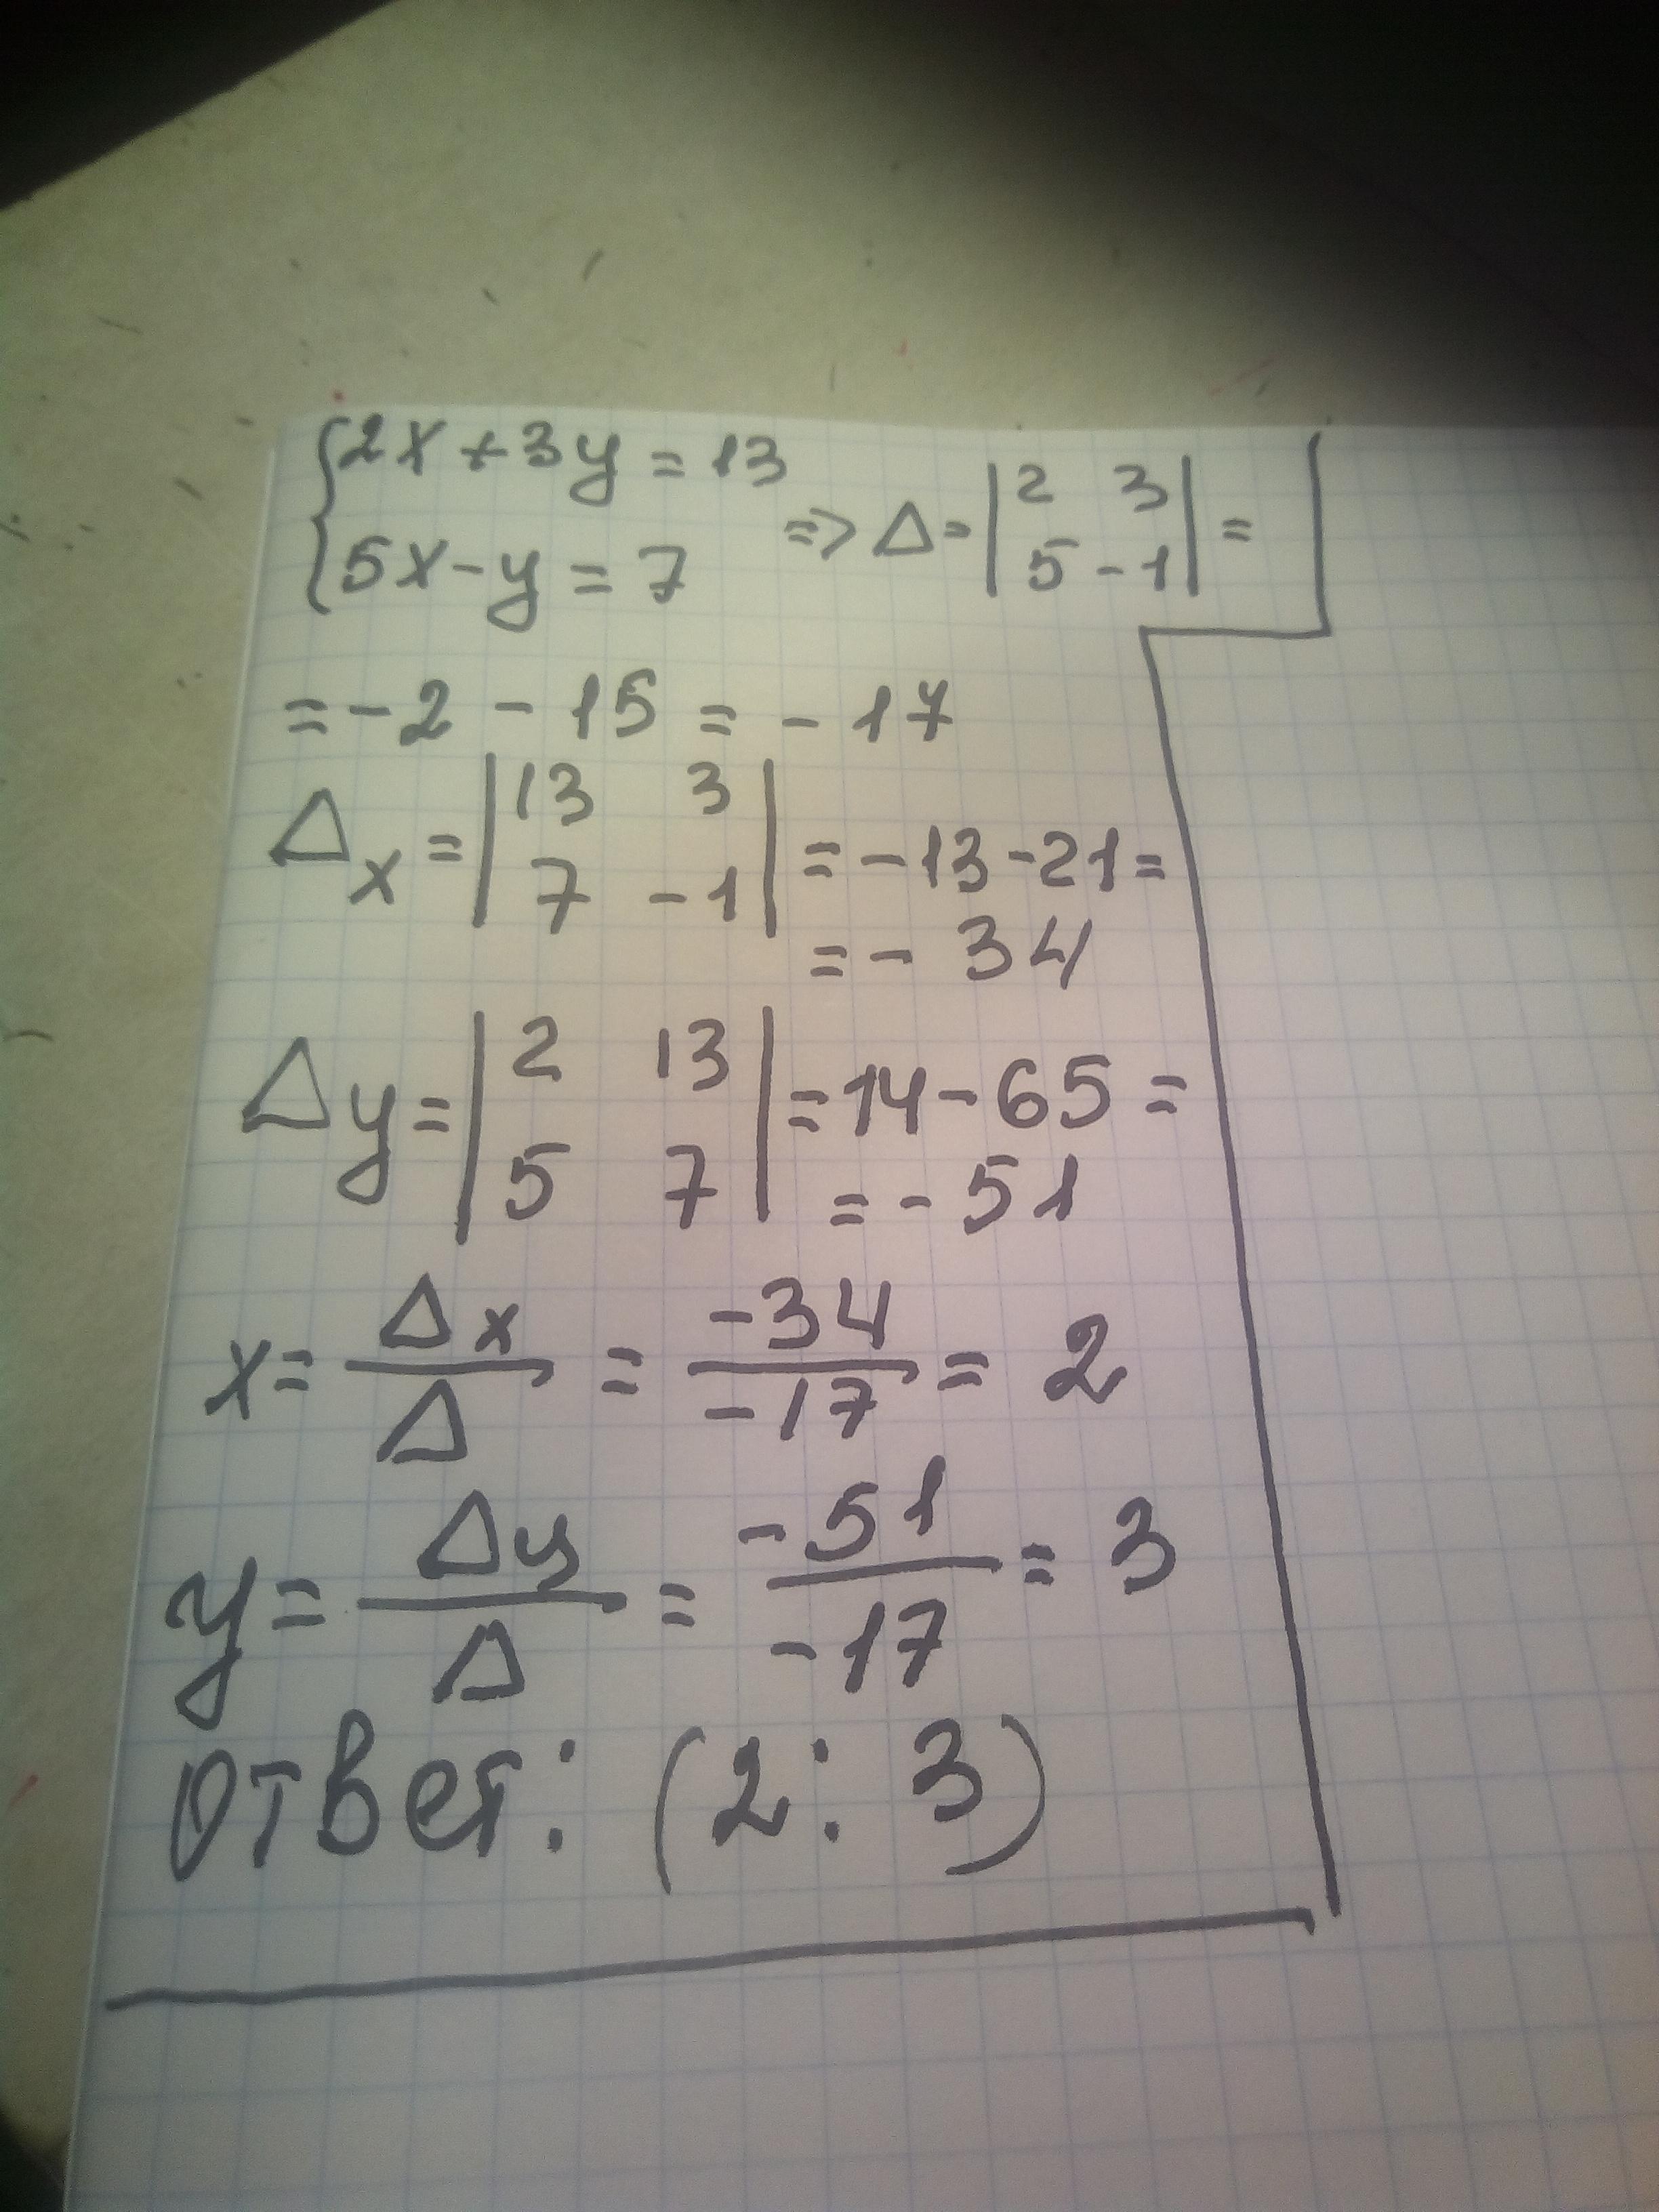 {2x+3y=13
{5x-y=7 => Δ=|2 3|
|5 -1|=
=-2-15=-17
Δx=|13 3|
|7 -1|=-13-21=
=-34
Δy=|2 13|=14-65=
|5 7|=-51
x=Δx/Δ=-34/-17=2
y=Δy/Δ=-51/-17=3
Ответ: (2:3)